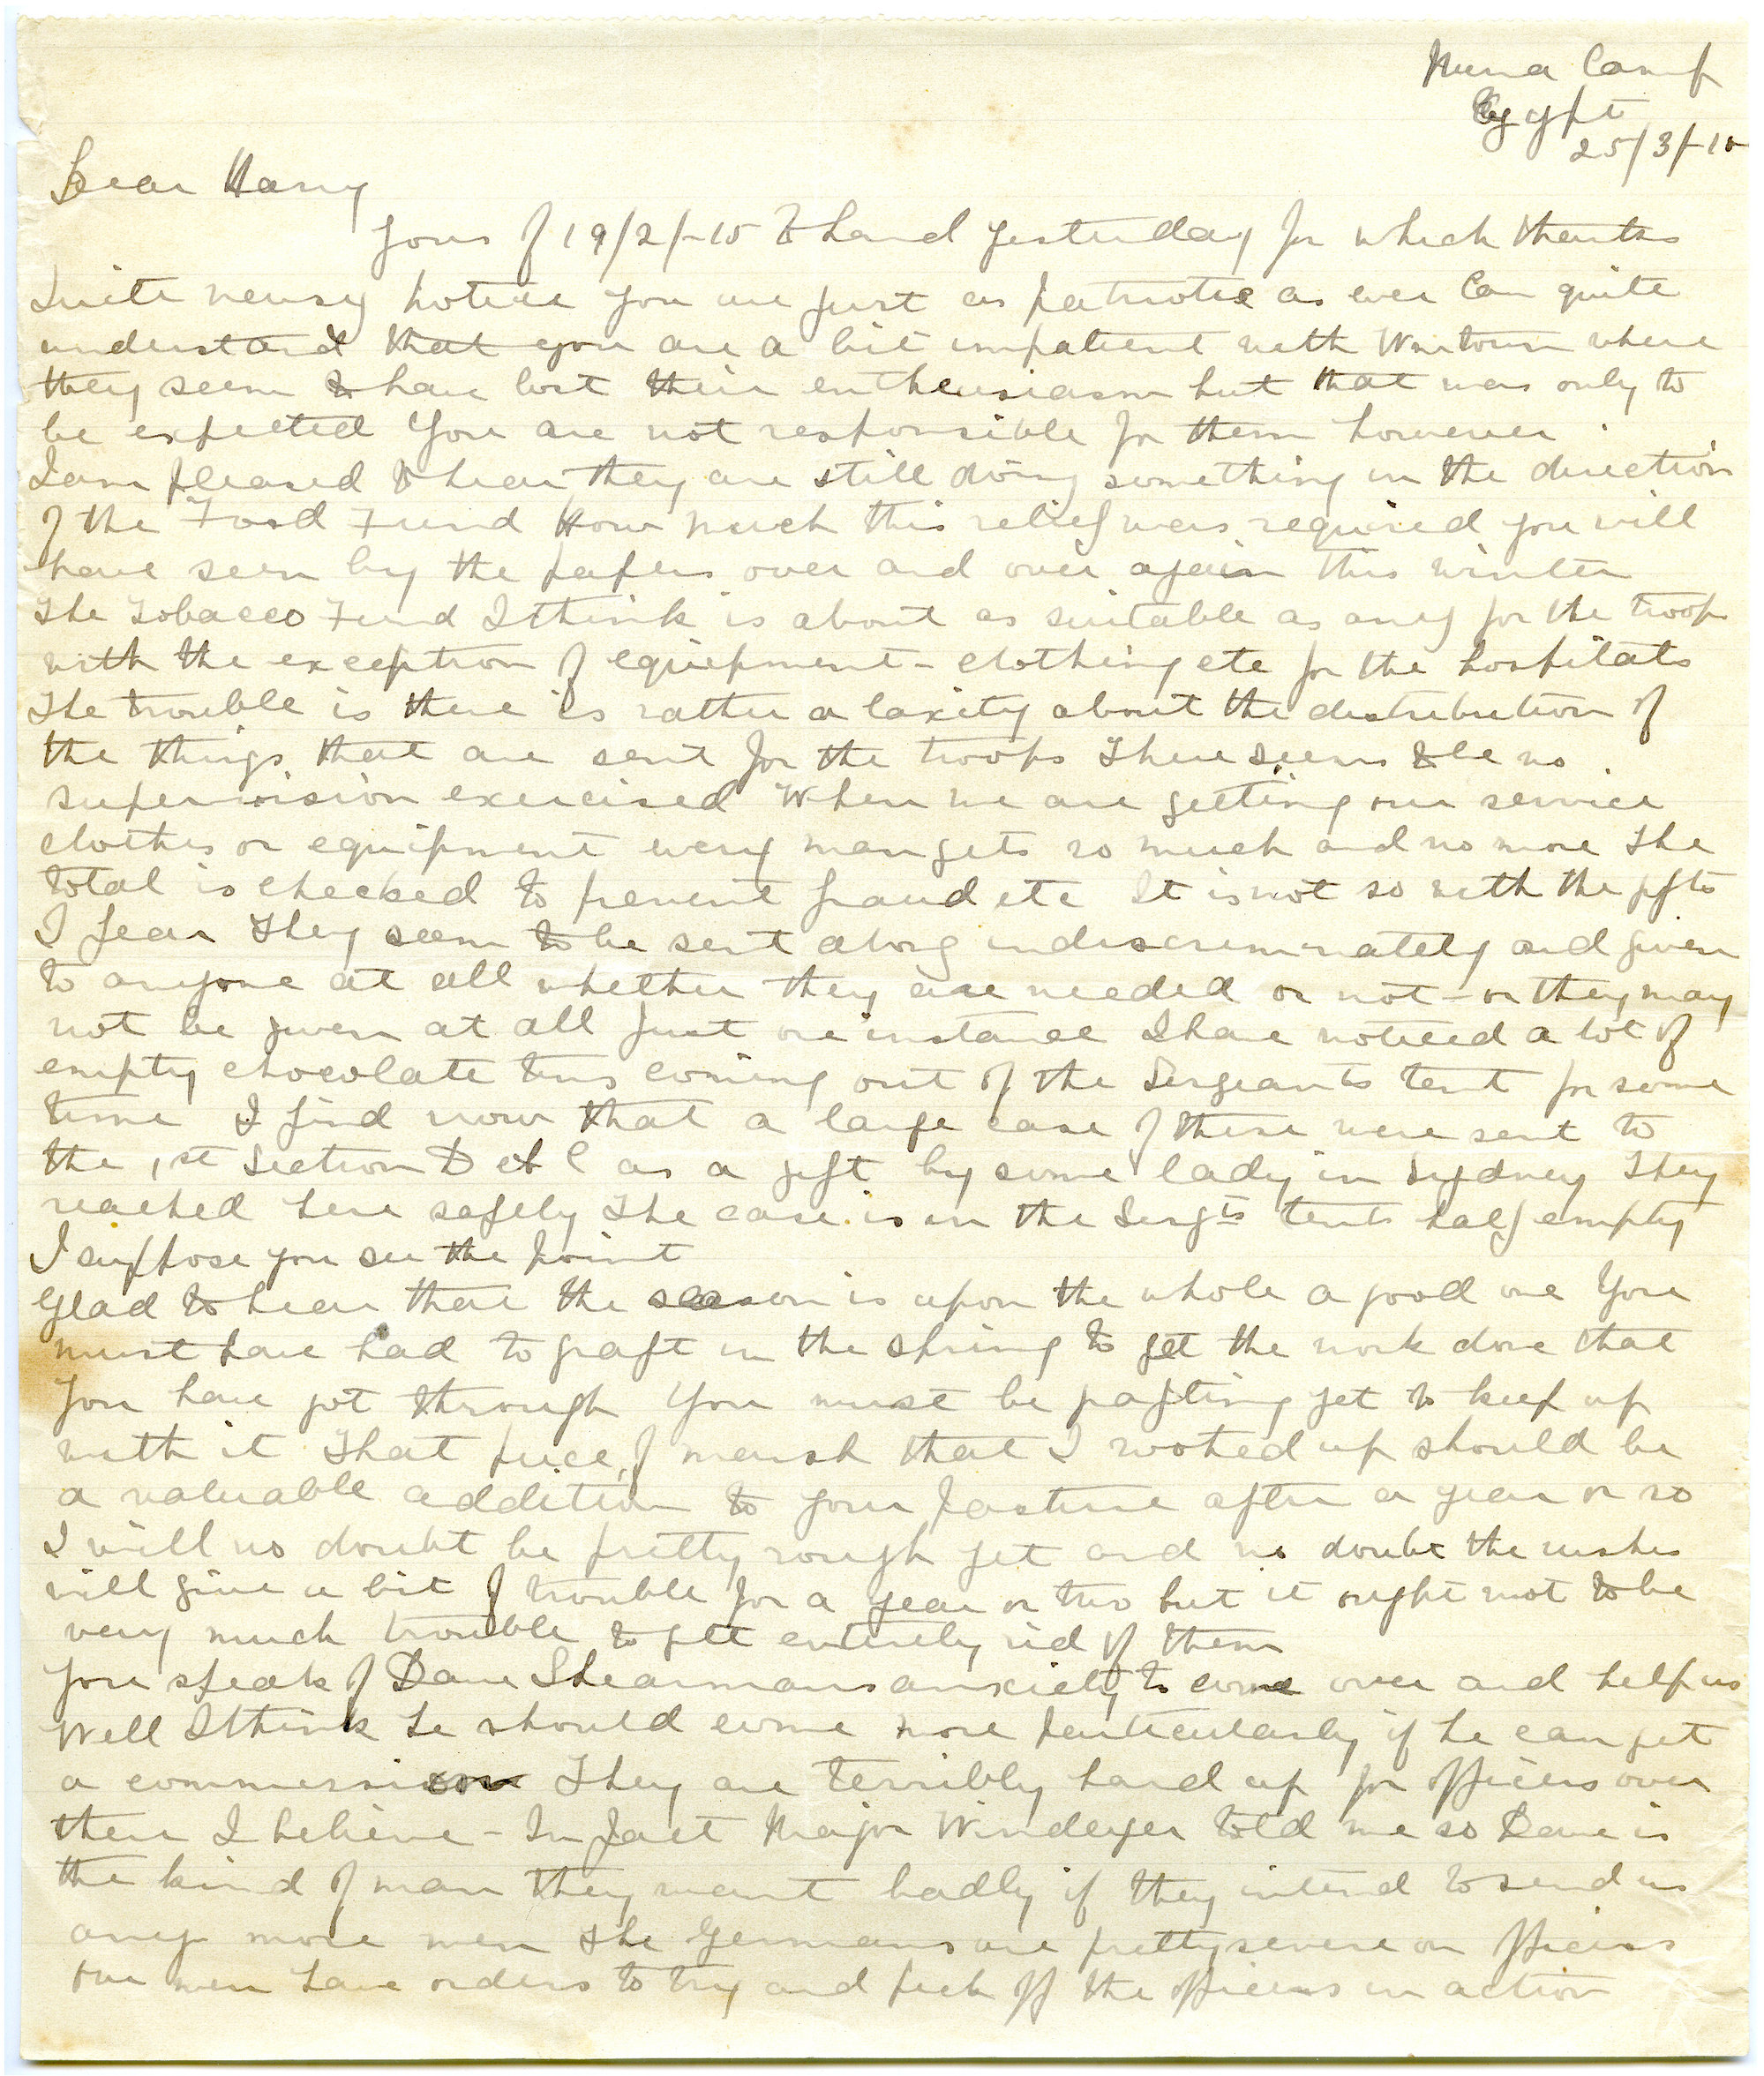 Mena Camp
Egypt
25/3/-15
Dear Harry
Yours of 19/2/-15 to hand yesterday for which thanks
Quite newsy notice you are just as patriotic as ever Can quite
understand that you are a bit impatient with where
they seem to have lost their enthusiasm but that was only to
be expected You are not responsible for them however .
I am pleased to hear they are still doing something in the direction
of the Food Fund How much this relief was required you will
have seen by the papers over and over again this winter
The Tobacco Fund I think is about as suitable as any for the troops
with the exception of equipment - clothing etc for the hospitals
The trouble is there is rather a laxity about the distribution of
the things that are sent for the troops There seems to be no
supervision exercised When we are getting our service
clothes or equipment every man gets so much and no more The
total is checked to prevent fraud etc It is not so with the gifts
I fear They seem to be sent along indiscriminately and given
to anyone at all whether they are needed or not - or they may
not be given at all Just one instance I have noticed a lot of
empty chocolate tins coming out of the Sergeants tent for some
time I find now that a large case of these were sent to
the 1st Section D of C as a gift by some lady in Sydney They
reached here safely The case is in the Sergts tents half empty
I suppose you see the point
Glad to hear that the season is upon the whole a good one You
must have had to graft in the spring to get the work done that
you have got through You must be grafting yet to keep up
with it That piece of marsh that I rooted up should be
a valuable addition to your pasture after a year or so
I will no doubt be pretty rough yet and no doubt the rushes
will give a bit of trouble for a year or two but it ought not to be
very much trouble to get entirely rid of them
You speak of Dave Shearmans anxiety to come over and help us
Well I think he should come more particularly if he can get
a commersion They are terribly hard up for officers over
there I believe - In fact Major Windeyer told me so Dave is
the kind of man they want badly if they intend to send us
any more men The Germans are pretty severe on officers
Our men have orders to try and pick off the officers in action